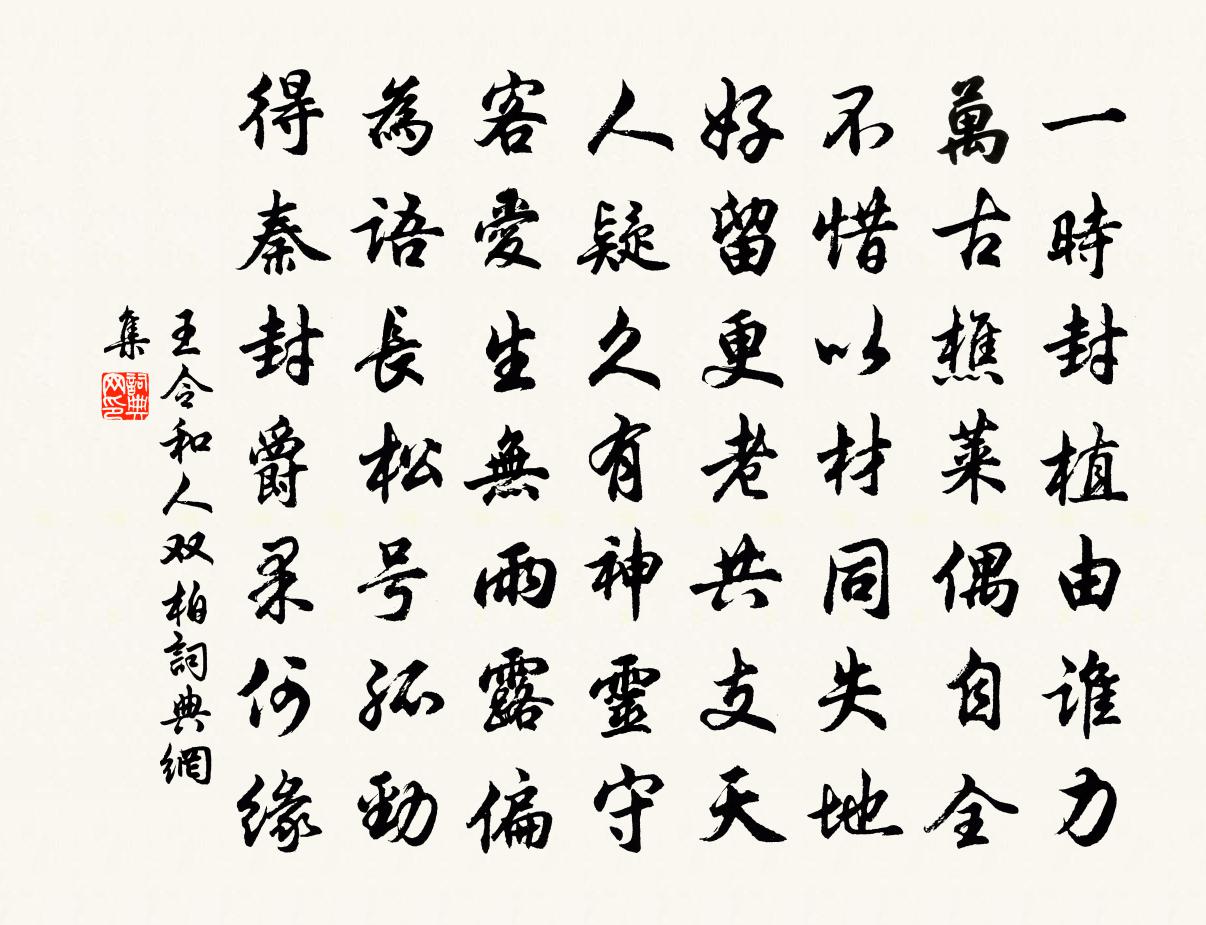 一時封植由誰力
萬古樵萊偶自全
不惜以材同失地
好留更老共支天
人疑久有神靈守
客愛生無雨露偏
為語長松号孤勁
得秦封爵果何緣
王令和人双柏詞典網
集
詞典
网印